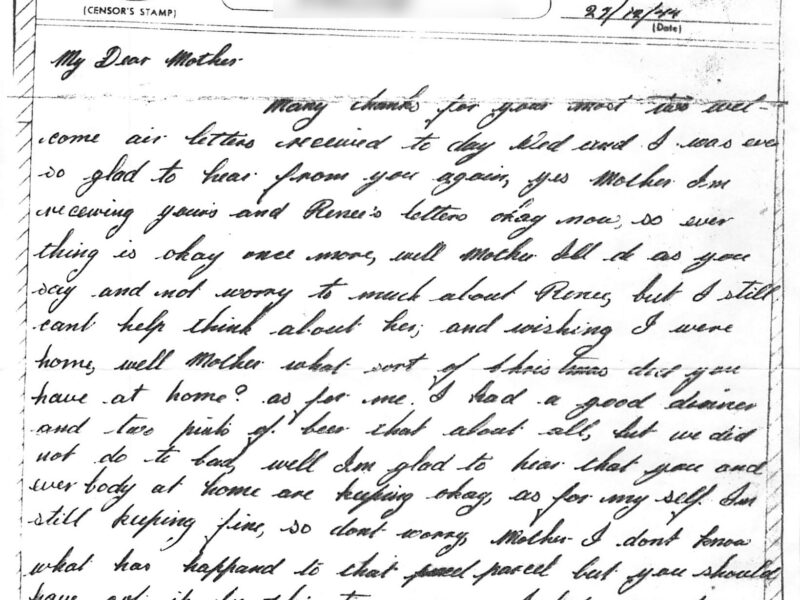 (CENSOR'S STAMP)
27/12/44
(Date)
My Dear Mother
Many thanks for your most two wel-
come air letters received to day Wed and I was ever
so glad to hear from you again, yes Mother Im
receiving yours and Renee's letters okay now, so ever
thing is okay once more, well Mother Ill do as you
say and not worry to much about Renee, but I still
cant help think about her, and wishing I were
home, well Mother what sort of Christmas did you
have at home? as for me. I had a good dinner
and two pints of beer that about all, but we did
not do to bad, well Im glad to hear that you and
ever body at home are keeping okay, as for my self Im
still keeping fine, so dont worry, Mother I dont know
what has happand to that parcel but you should
have got it by this